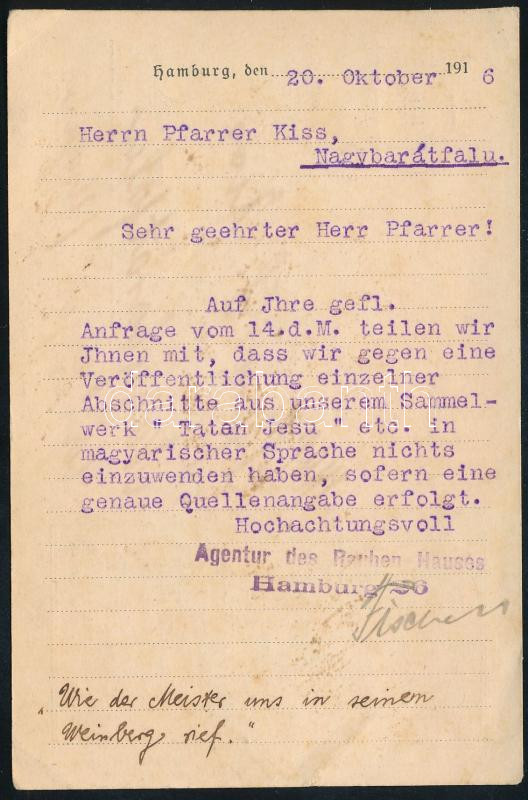 Hamburg, den 20. Oktober 1916
Herrn Pfarrer Kiss,
Nagybarátfalu.
Sehr geehrter Herr Pfarrer!
Auf Jhre gefl.
Anfrage vom 14.d.M. teilen wir
Jhnen mit, dass wir gegen eine
Veröffentlichung einzelner
Abschnitte aus unserem Sammel-
werk " Tatan Jesu " etc. in
magyarischer Sprache nichts
einzuwenden haben, sofern eine
genaue Quellenangabe erfolgt.
Hochachtungsvoll
Agentur des Rauhen Hauses
Hamburg 26
„Wie der Meister uns in seinem
Weinberg rief."
darabanth